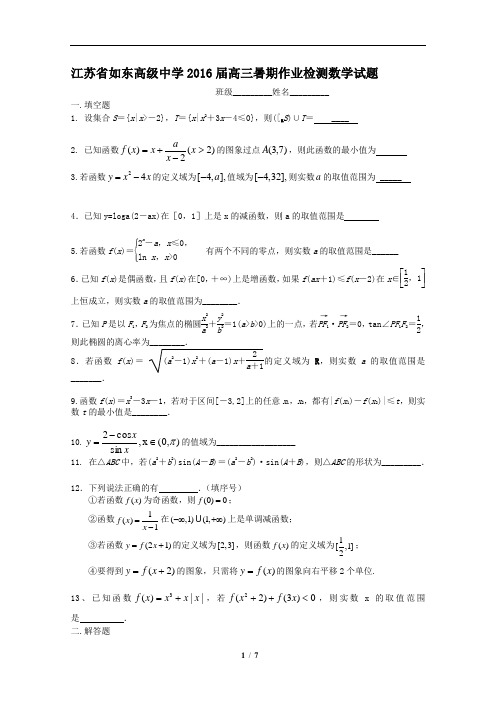 江苏省如东高级中学2016届高三暑期作业检测数学试题
班级_________姓名_________
一.填空题
1. 设集合S={x|x>-2},T={x|x²+3x-4≤0},则(∁RS)∪T= ____
2. 已知函数f(x)=x+a/(x-2)(x>2)的图象过点A(3,7),则此函数的最小值为______
3.若函数y=x²-4x的定义域为[-4,a],值域为[-4,32],则实数a的取值范围为 _____
4.已知y=loga(2-ax)在[0,1]上是x的减函数,则a的取值范围是______
5.若函数f(x)={2ˣ-a,x≤0,ln x,x>0 有两个不同的零点,则实数a的取值范围是______
6.已知f(x)是偶函数,且f(x)在[0,+∞)上是增函数,如果f(ax+1)≤f(x-2)在x∈[1/2,1]
上恒成立,则实数a的取值范围为________.
7.已知P是以F₁,F₂为焦点的椭圆x²/a²+y²/b²=1(a>b>0)上的一点,若PF₁→·PF₂→=0,tan∠PF₁F₂=1/2,
则此椭圆的离心率为________.
8.若函数f(x)=√((a²-1)x²+(a-1)x+2/(a+1))的定义域为R,则实数a的取值范围是
_______.
9.函数f(x)=x³-3x-1,若对于区间[-3,2]上的任意x₁,x₂,都有|f(x₁)-f(x₂)|≤t,则实
数t的最小值是________.
10. y=(2-cosx)/sinx,x∈(0,π)的值域为__________________
11. 在△ABC中,若(a²+b²)sin(A-B)=(a²-b²)·sin(A+B),则△ABC的形状为_________.
12.下列说法正确的有_________.(填序号)
①若函数f(x)为奇函数,则f(0)=0;
②函数f(x)=1/(x-1)在(-∞,1)∪(1,+∞)上是单调减函数;
③若函数y=f(2x+1)的定义域为[2,3],则函数f(x)的定义域为[1/2,1];
④要得到y=f(x+2)的图象,只需将y=f(x)的图象向右平移2个单位.
13、已知函数f(x)=x³+x|x|,若f(x²+2)+f(3x)<0,则实数x的取值范围
是______.
二.解答题
1 / 7